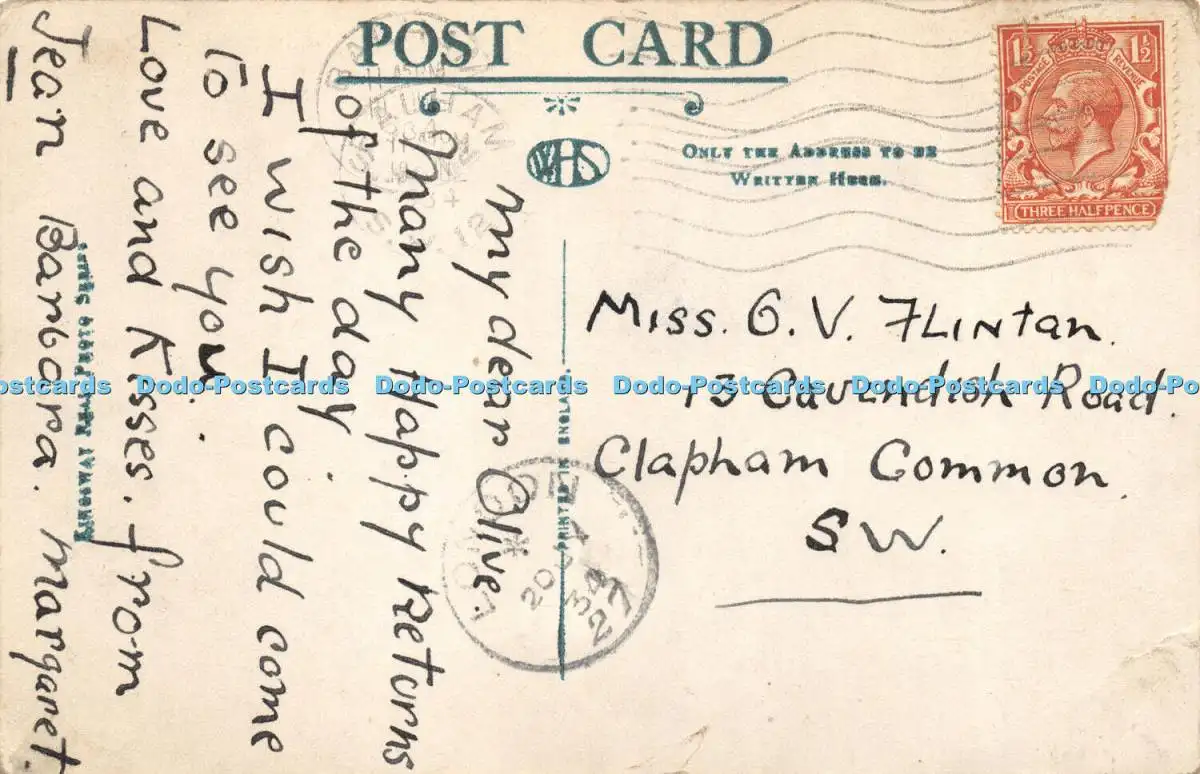 POST CARD
WHS
ONLY THE ADDRESS TO BE
WRITTEN HERE.
1½ 1½
POSTAGE REVENUE
THREE HALFPENCE
My dear Olive.
Many Happy Returns
of the day
I wish I could come
To see you.
Love and Kisses. from
Jean Barbora. Margaret.
Miss. O. V. FLINtan.
13 Cavendish Road.
Clapham Common.
SW.
PRINTED IN ENGLAND.
KINGSWAY REAL PHOTO SERIES
LONDON
34
27
Dodo-Postcards Dodo-Postcards Dodo-Postcards Dodo-Postcards Dodo-Postcards